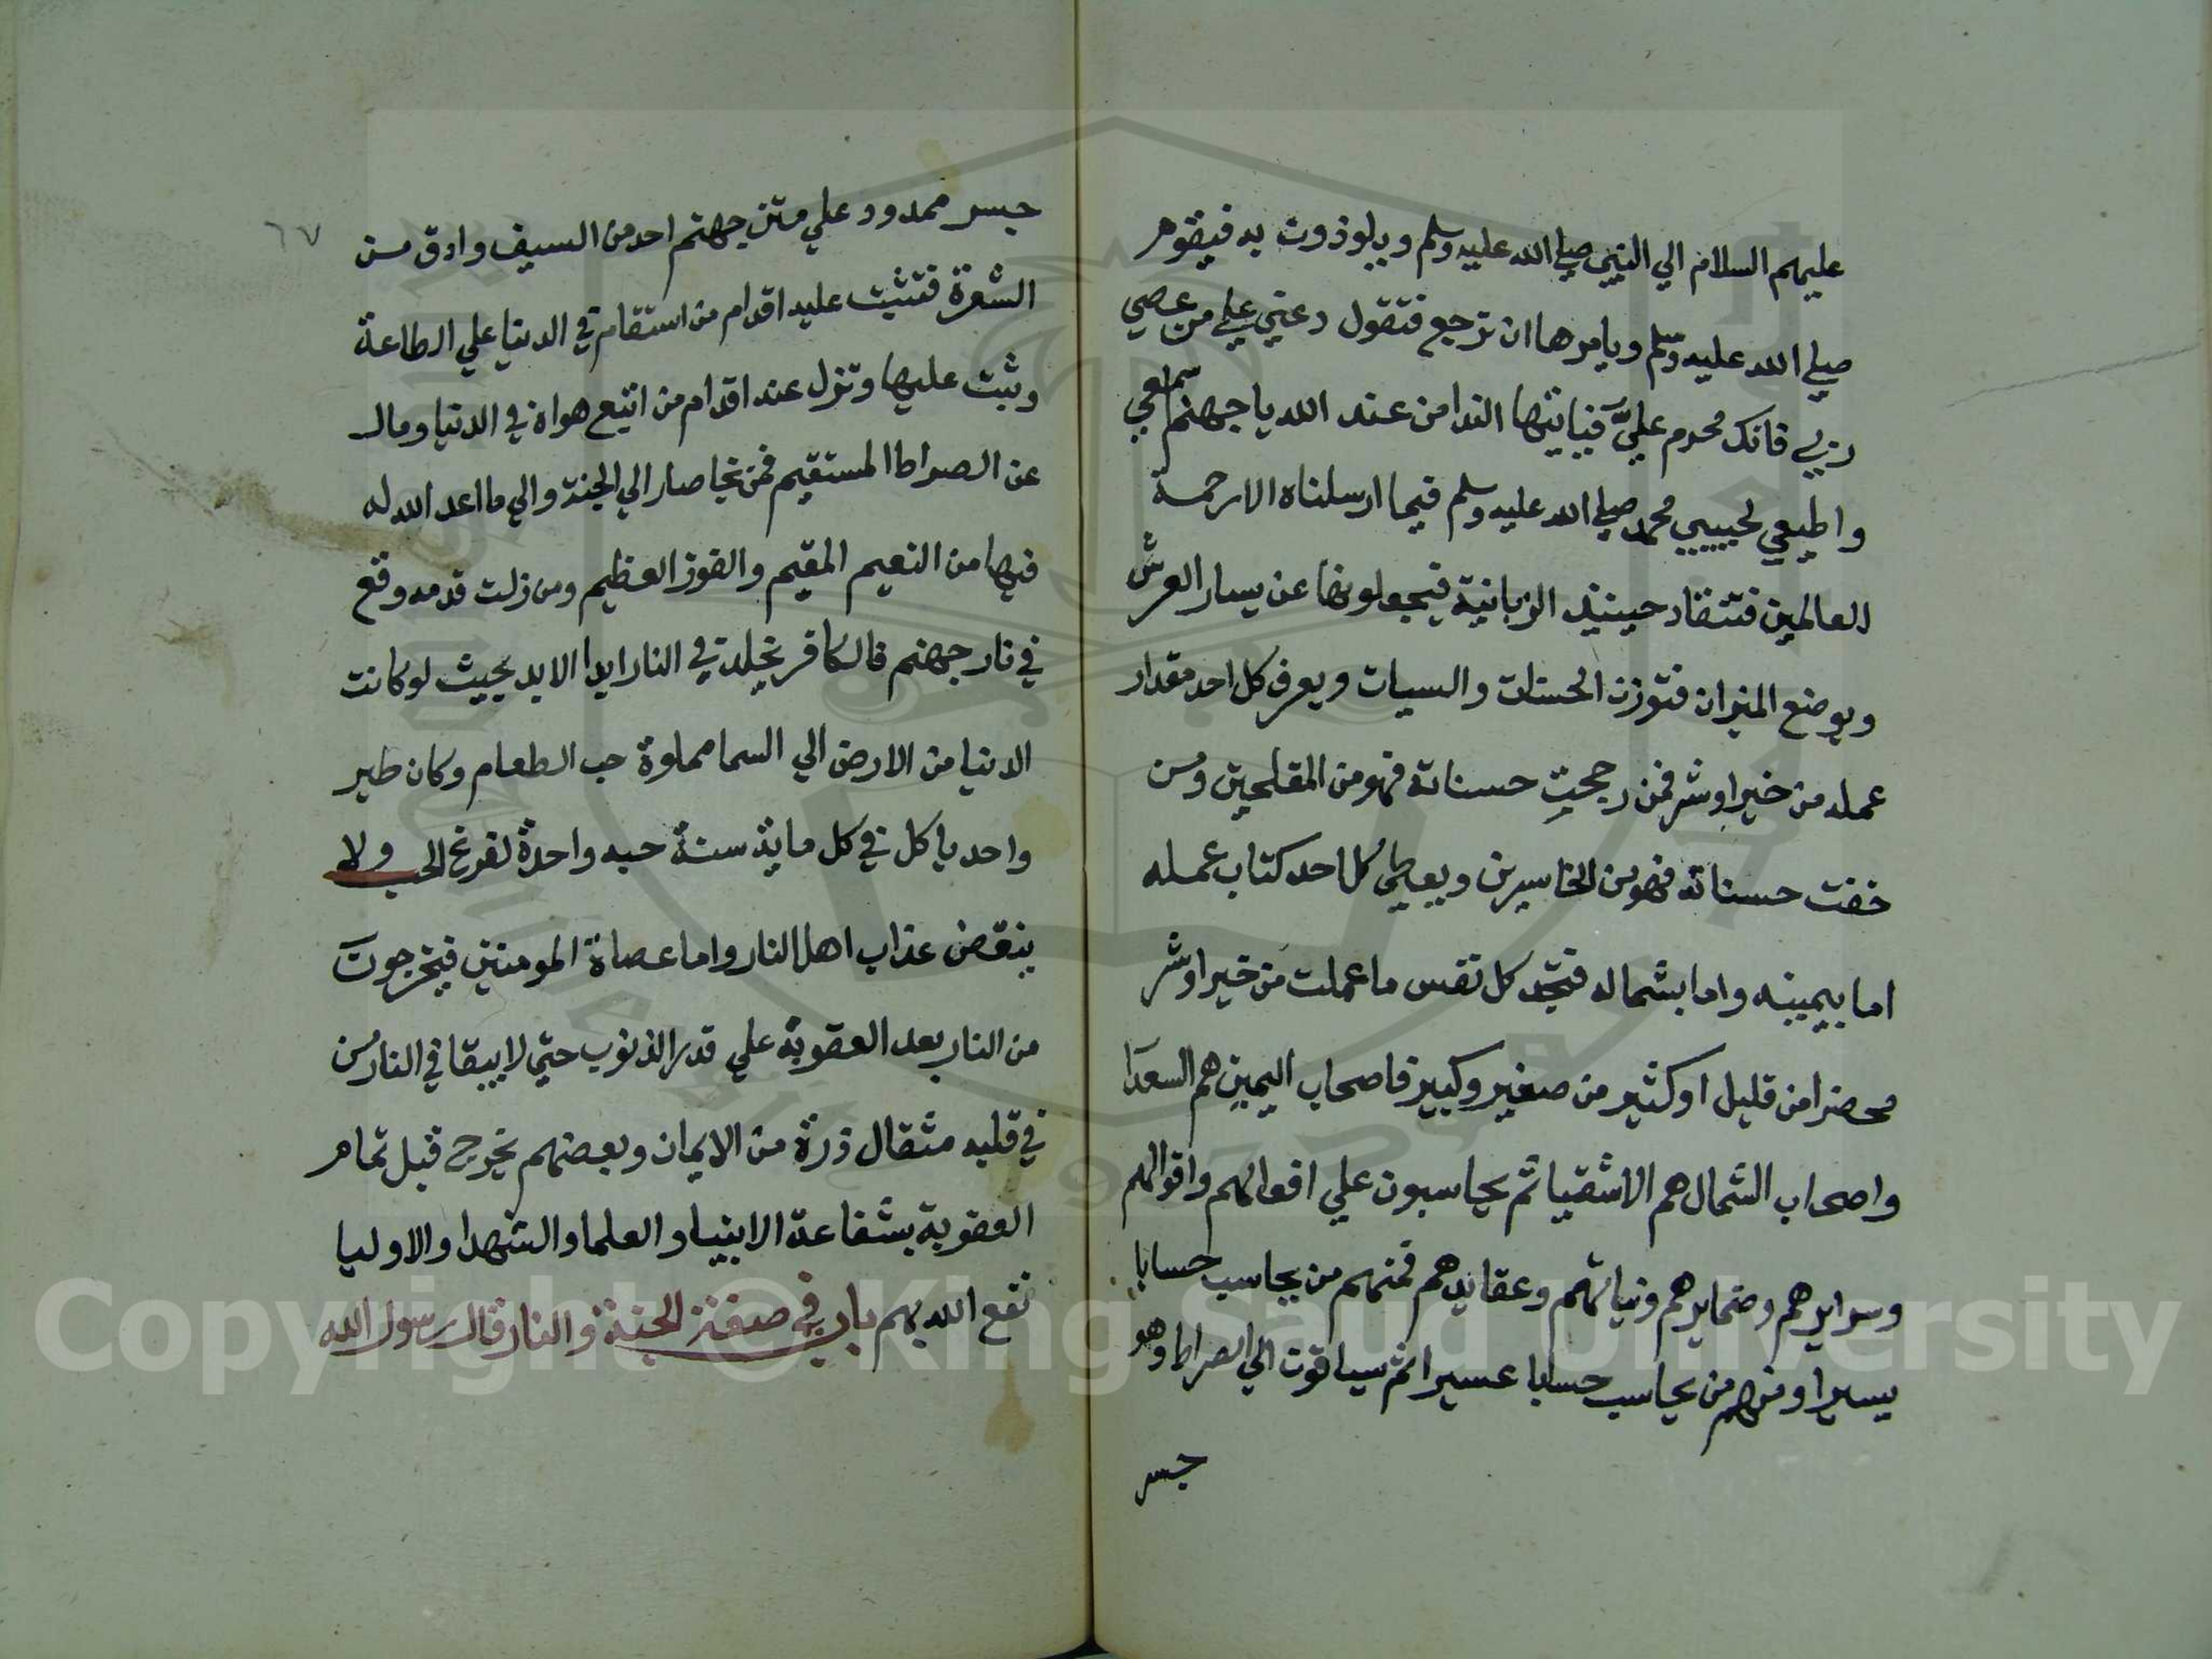 عليهم السلام الي النبي صلي الله عليه وسلم ويلوذون به فيقوم
صلي الله عليه وسلم ويامرها ان ترجع فتقول دعني علي من عصي
ربي فانك محرم عليَّ فياتيها الندا من عند الله يا جهنم اسمعي
واطيعي لحبيبي محمد صلي الله عليه وسلم فيما ارسلناه الا رحمة
العالمين فتنقاد حينيذ الزبانية فيجعلونها عن يسار العرش
ويوضع الميزان فتوزن الحسنات والسيات ويعرف كل احد مقدار
عمله من خير او شر فمن رجحت حسناته فهو من المفلحين ومن
خفت حسناته فهو من الخاسرين ويعطي كل احد كتاب عمله
اما بيمينه واما بشماله فتجد كل نفس ما عملت من خير او شر
محضرا من قليل او كثير من صغير وكبير فاصحاب اليمين هم السعدا
واصحاب الشمال هم الاشقيا ثم يحاسبون علي افعالهم واقوالهم
وسرايرهم وضمايرهم ونياتهم وعقايدهم فمنهم من يحاسب حسابا
يسيرا ومنهم من يحاسب حسابا عسيرا ثم يساقون الي الصراط وهو
جسر
٦٧
جسر ممدود علي متن جهنم احد من السيف وادق من
الشعرة فتثبت عليه اقدام من استقام في الدنيا علي الطاعة
وثبت عليها وتزل عنه اقدام من اتبع هواه في الدنيا ومال
عن الصراط المستقيم فمن نجا صار الي الجنة والي ما اعد الله له
فيها من النعيم المقيم والفوز العظيم ومن زلت قدمه وقع
في نار جهنم فالكافر يخلد في النار ابدا الابد بحيث لو كانت
الدنيا من الارض الي السما مملوة حب الطعام وكان طير
واحد ياكل في كل ماية سنة حبه واحدة لفرغ الحب ولا
ينقض عذاب اهل النار واما عصاة المومنين فيخرجون
من النار بعد العقوبة علي قدر الذنوب حتي لا يبقا في النار من
في قلبه مثقال ذرة من الايمان وبعضهم يخرج قبل تمام
العقوبة بشفاعة الانبيا والعلما والشهدا والاوليا
نفع الله بهم باب في صفة الجنة والنار قال رسول الله
Copyright © King Saud University